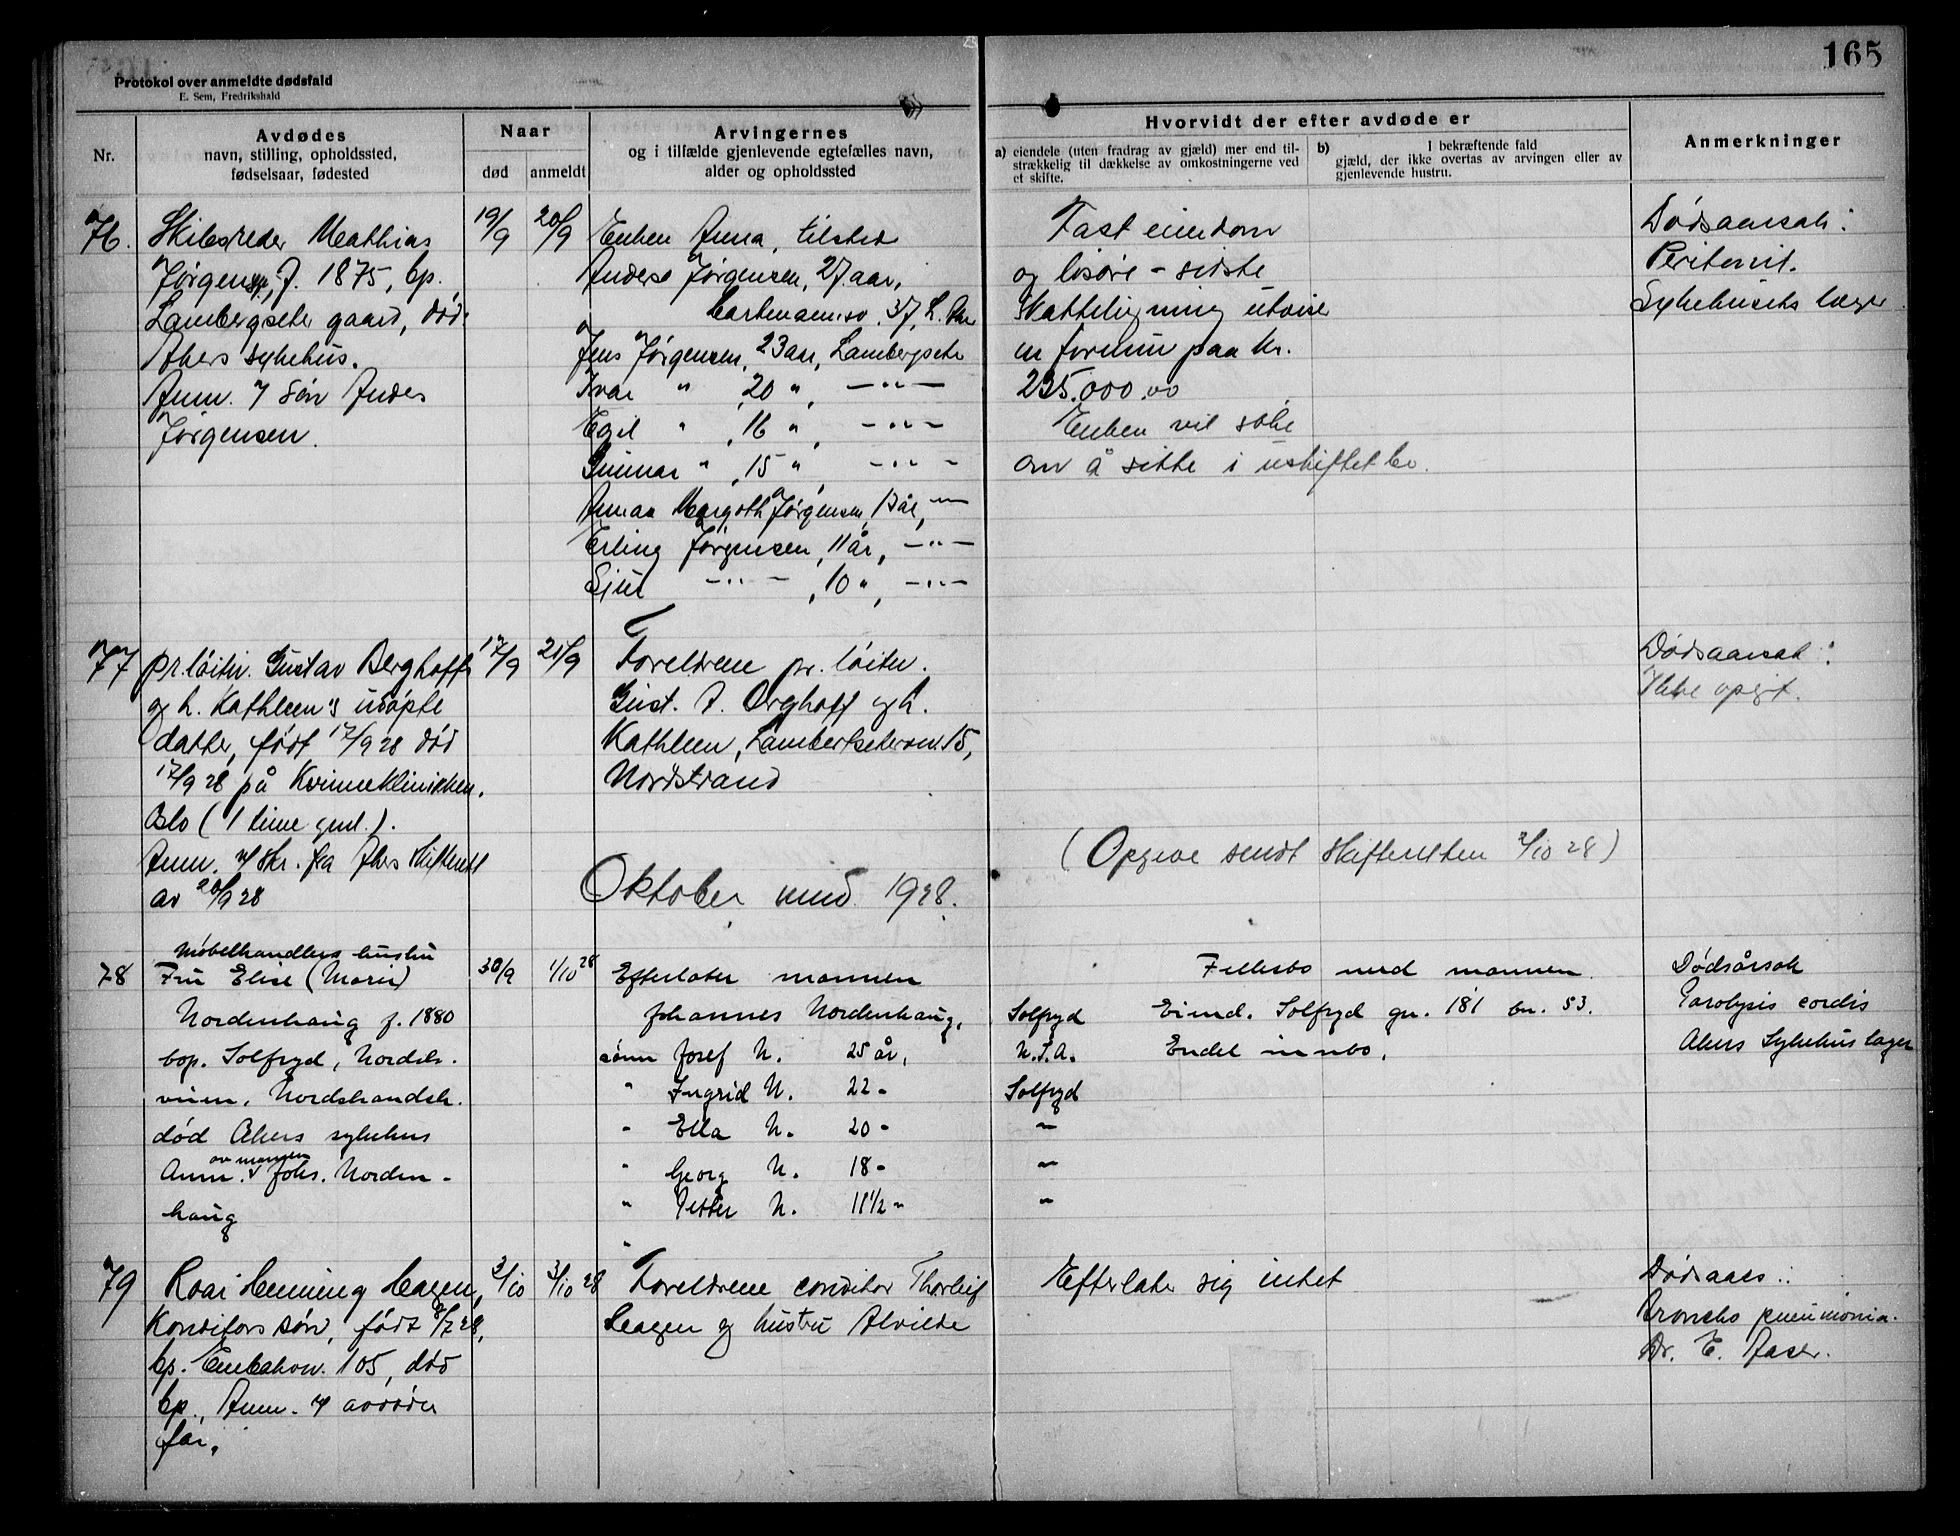 165
Protokol over anmeldte dødsfald
E. Sem, Fredrikshald
Nr.
Avdødes
navn, stilling, opholdssted,
fødselsaar, fødested
Naar
død
anmeldt
Arvingernes
og i tilfælde gjenlevende egtefælles navn,
alder og opholdssted
Hvorvidt der efter avdøde er
a) eiendele (uten fradrag av gjæld) mer end til-
strækkelig til dækkelse av omkostningerne ved
et skifte.
b) I bekræftende fald
gjæld, der ikke overtas av arvingen eller av
gjenlevende hustru.
Anmerkninger
76.
Skibsreder Mathias
Jørgensen, f. 1875, bp.
Lambergseter gaard, død:
Akers sykehus.
Anm. af søn Anders
Jørgensen.
19/9
20/9
Enken Anna, tilsted
Anders Jørgensen, 27 aar,
37,
Jens Jørgensen, 23 aar, Lambergseter
Ivar " , 20 " , —"—
Egil " , 16 " , —"—
Gunnar " , 15 " , —"—
Annaa Margoth Jørgensen, 13 år, —"—
Erling Jørgensen, 11 år, —"—
Sjur —"— , 10 " , —"—
Fast eiendom
og løsøre - sidste
skatteligning utviser
en formue paa kr.
235.000.00
Enken vil søke
om å sitte i uskiftet bo.
Dødsaarsak:
Peritonit.
Sykehusets læge
77
pr.løitn. Gustav Berghoff
og h. Kathleen's udøpte
datter, født 17/9 28 død
17/9 28 på Kvinneklinikken,
Oslo (1 time gml.).
Anm. af skr. fra Akers skifterett
av 20/9 28
17/9
21/9
Foreldrene pr. løitn.
Gust. A. Berghoff og h.
Kathleen, Lambertseterveien 15,
Nordstrand
Dødsaarsak:
Ikke opgit.
(Opgave sendt skifteretten 2/10 28)
Oktober mnd. 1928.
78
Møbelhandlers hustru
Fru Elise (Marie)
Nordenhaug f. 1880
bop. Solfryd, Nordstr.
veien, Nordstrandsh.
død Akers sykehus
av mannen
Anm. v Johs. Norden-
haug
30/9
1/10 28
Efterlater mannen
Johannes Nordenhaug, Solfryd
sønn Josef N. 25 år, U.S.A.
" Ingrid N. 22 - Solfryd
" Ella N. 20 - "
" Georg N. 18 - "
" Petter N. 11 1/2 - "
"
Fellesbo med mannen
Eiend. Solfryd gn. 181 bn. 53.
Endel innbo.
Dødsårsak
Paralysis cordis
Akers Sykehus læger
79
Roar Henning Hagen,
Konditors søn, født 8/7 28,
bp. Enebakv. 105, død
bp., Anm. af avdødes
far.
3/10
3/10 28
Foreldrene conditor Thorleif
Hagen og hustru Alvilde
Efterlater sig intet
Dødsaars.:
Broncho pneumonia.
Dr. E.